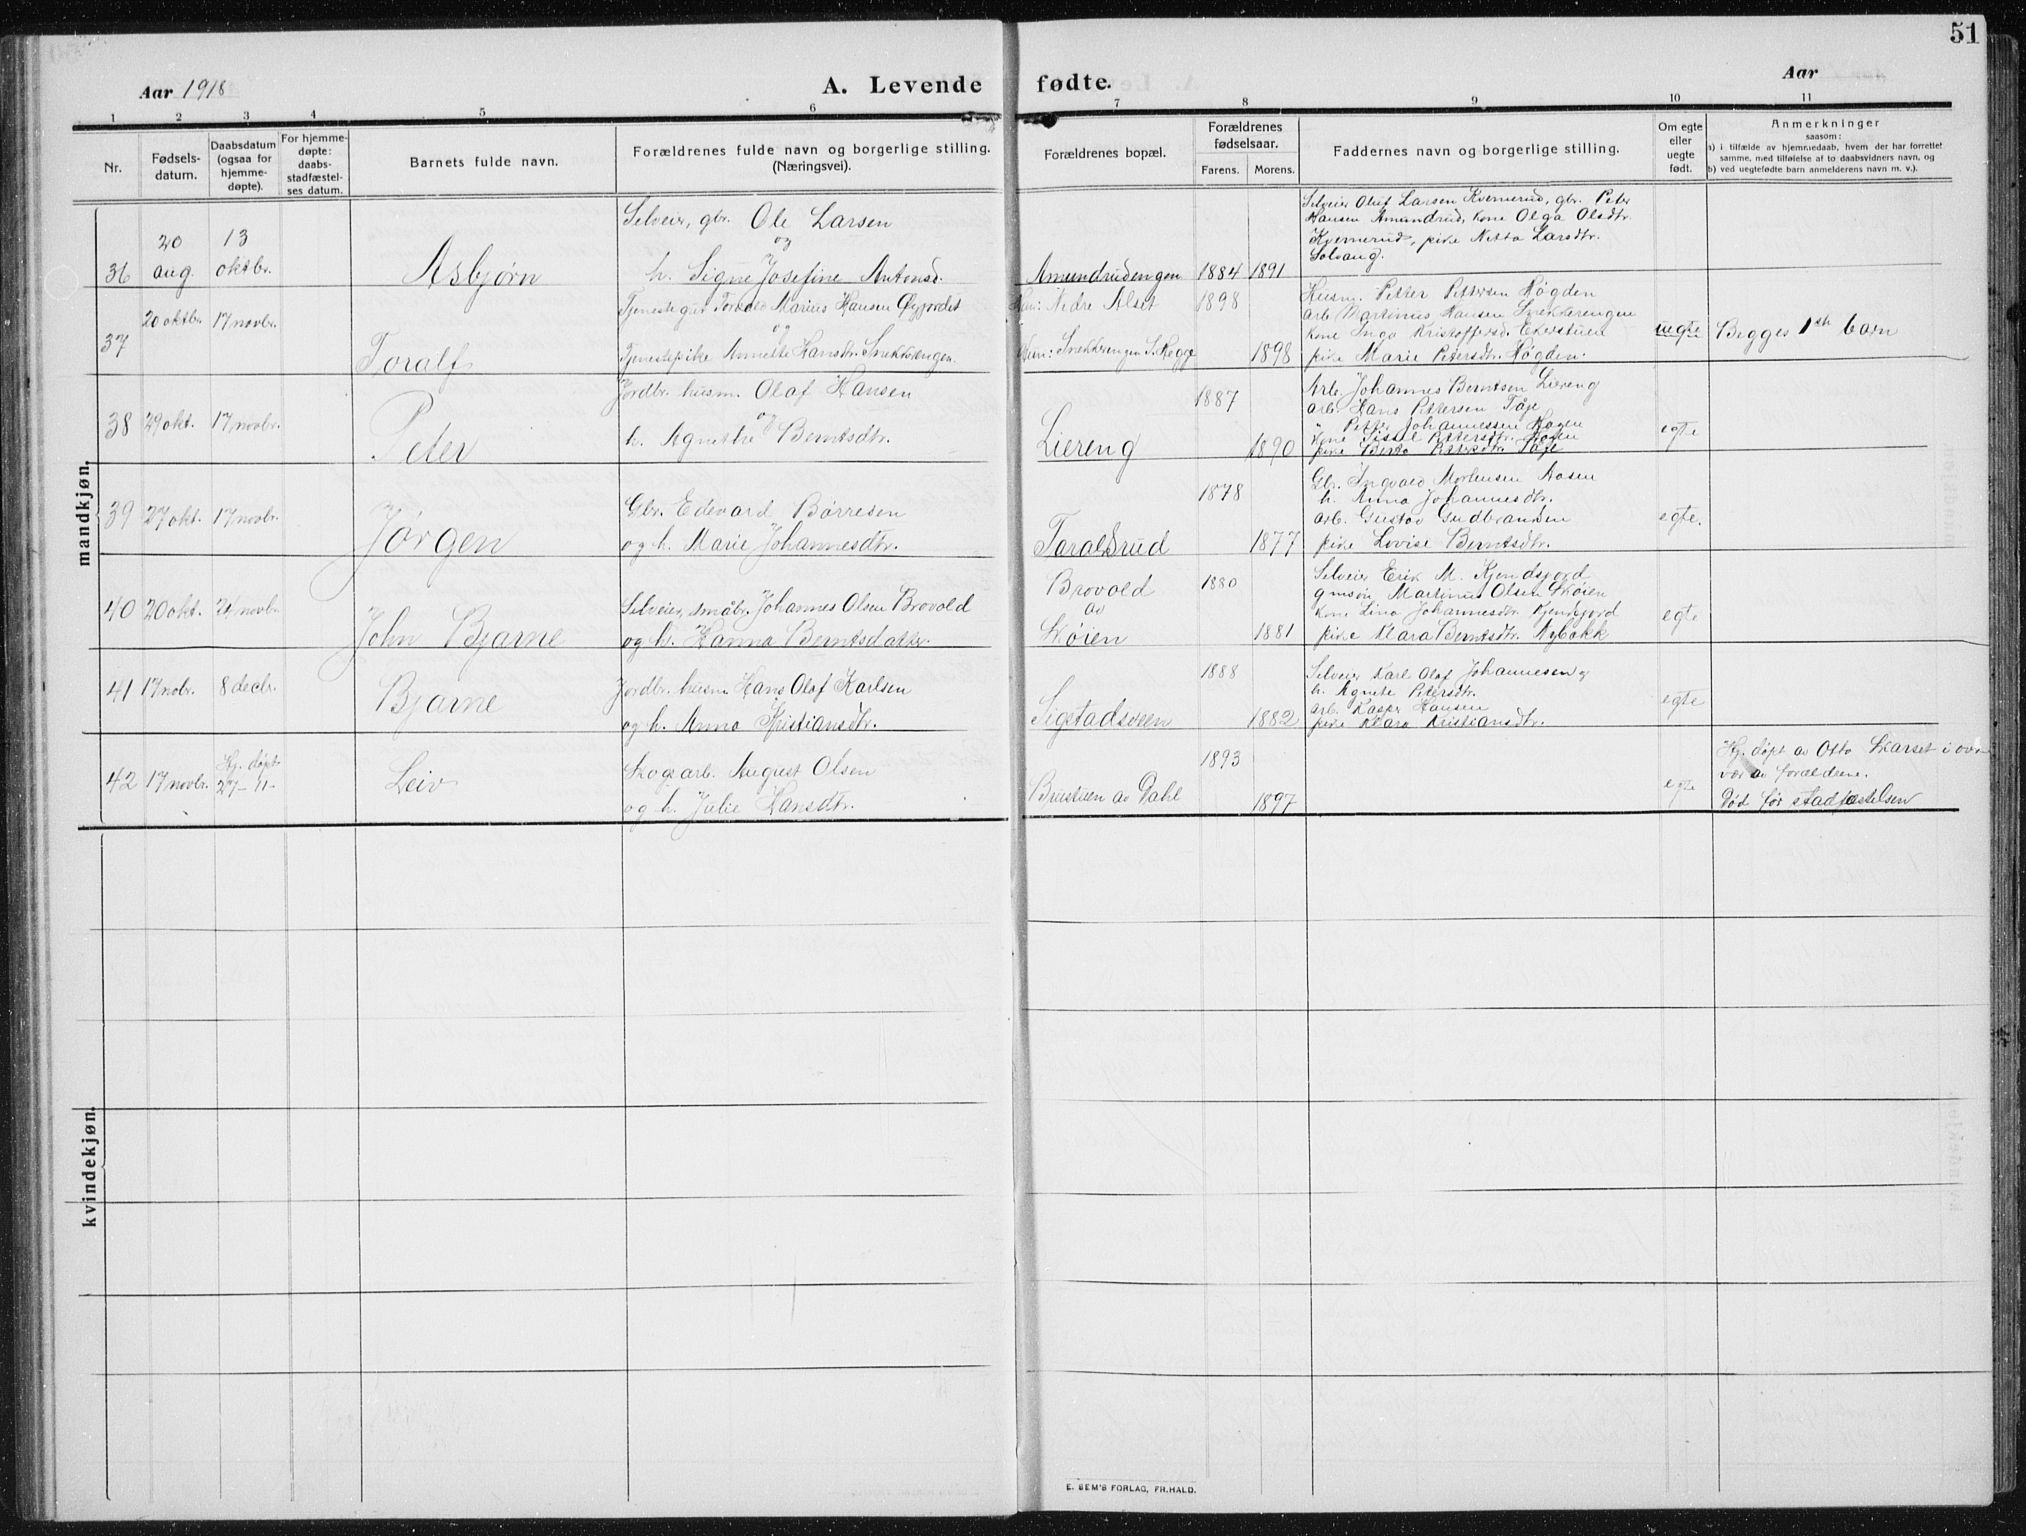 51
Aar 1918
A. Levende fødte.
Aar
1 2 3 4 5 6 7 8 9 10 11
Nr.
Fødsels-
datum.
Daabsdatum
(ogsaa for
hjemme-
døpte).
For hjemme-
døpte:
daabs-
stadfæstel-
ses datum.
Barnets fulde navn.
Forældrenes fulde navn og borgerlige stilling.
(Næringsvei).
Forældrenes bopæl.
Forældrenes
fødselsaar.
Farens. Morens.
Faddernes navn og borgerlige stilling.
Om egte
eller
uegte
født.
Anmerkninger
saasom:
a) i tilfælde av hjemmedaab, hvem der har forrettet
samme, med tilføielse af to daabsvidners navn, og
b) ved uegtefødte barn anmelderens navn m. v.).
mandkjøn.
36
20
aug.
13
oktbr.
Asbjørn
Selveier, gbr. Ole Larsen
og
h. Signe Josefine Antonsd.
Amundrudengen
1884 1891
Selveier Oluf Larsen Kvernerud, gbr. Peter
Hansen Amundrud, kone Olga Olsdtr.
Kvernerud, pike Netta Larsdtr.
Solvang.
37
20 oktbr.
17 novbr.
Toralf
Tjenestegut Toralf Marius Hansen Øijordet
og
Tjenestepike Annette Hansdtr. Snekkerengen
Han: Nedre Alset
Hun: Snekkerengen S.
1898
1898
Husm. Petter Pettersen Høgden
arb. Martinus Hansen Snekkerengen
kone Inga Kristoffersd. Ekerstuen
pike Marie Petersdtr. Høgden.
uegte
Begges 1ste barn
38
29 okt.
17 novbr.
Peter
Jordbr. husm. Olaf Hansen
og
h. Agnethe Berntsdtr.
Liereng
1887
1890
Arb. Johannes Berntsen Liereng
arb. Hans Pettersen Taje
" Petter Johannessen Hagen
kone Sissel Pettersdtr. Hagen
pike Berta Pettersdtr. Taje
egte
39
27 okt.
17 novbr.
Jørgen
Gbr. Edevard Børresen
og h. Marie Johannesdtr.
Taralsrud
1878
1877
Gbr. Ingvald Mortensen Aasen
h. Anna Johannesdtr.
arb. Gustav Gudbrandsen
pike Lovise Berntsdtr.
egte.
40
20 okt.
24 novbr.
John Bjarne
Selveier, småbr. Johannes Olsen Brovold
og h. Hanna Berntsdatter
Brovold
av
Skøien
1880
1881
Selveier Erik M. Kjendsjord
gmsøn Martinus Olsen Skøien
kone Lina Johannesdtr. Kjendsjord
pike Klara Berntsdtr. Nybakk
egte
41
17 nobr.
8 decbr.
Bjarne
Jordbr. husm Hans Olaf Karlsen
og h. Anna Kristiansdtr.
Sigstadsveen
1888
1882
Selveier Karl Olaf Johannesen og
h. Agnete Petersdtr.
arb. Kasper Hansen
pike Klara Kristiansdtr.
egte
42
17 novbr.
Hj. døpt
27-11-
Leiv
Skogsarb. August Olsen
og h. Julie Hansdtr.
Brustuen av Dahl
1893
1897
egte
Hj. døpt av Otto Skarset i over-
vær av forældrene.
Død før stadfæstelsen
kvindekjøn.
E. SEM'S FORLAG, FR.HALD.